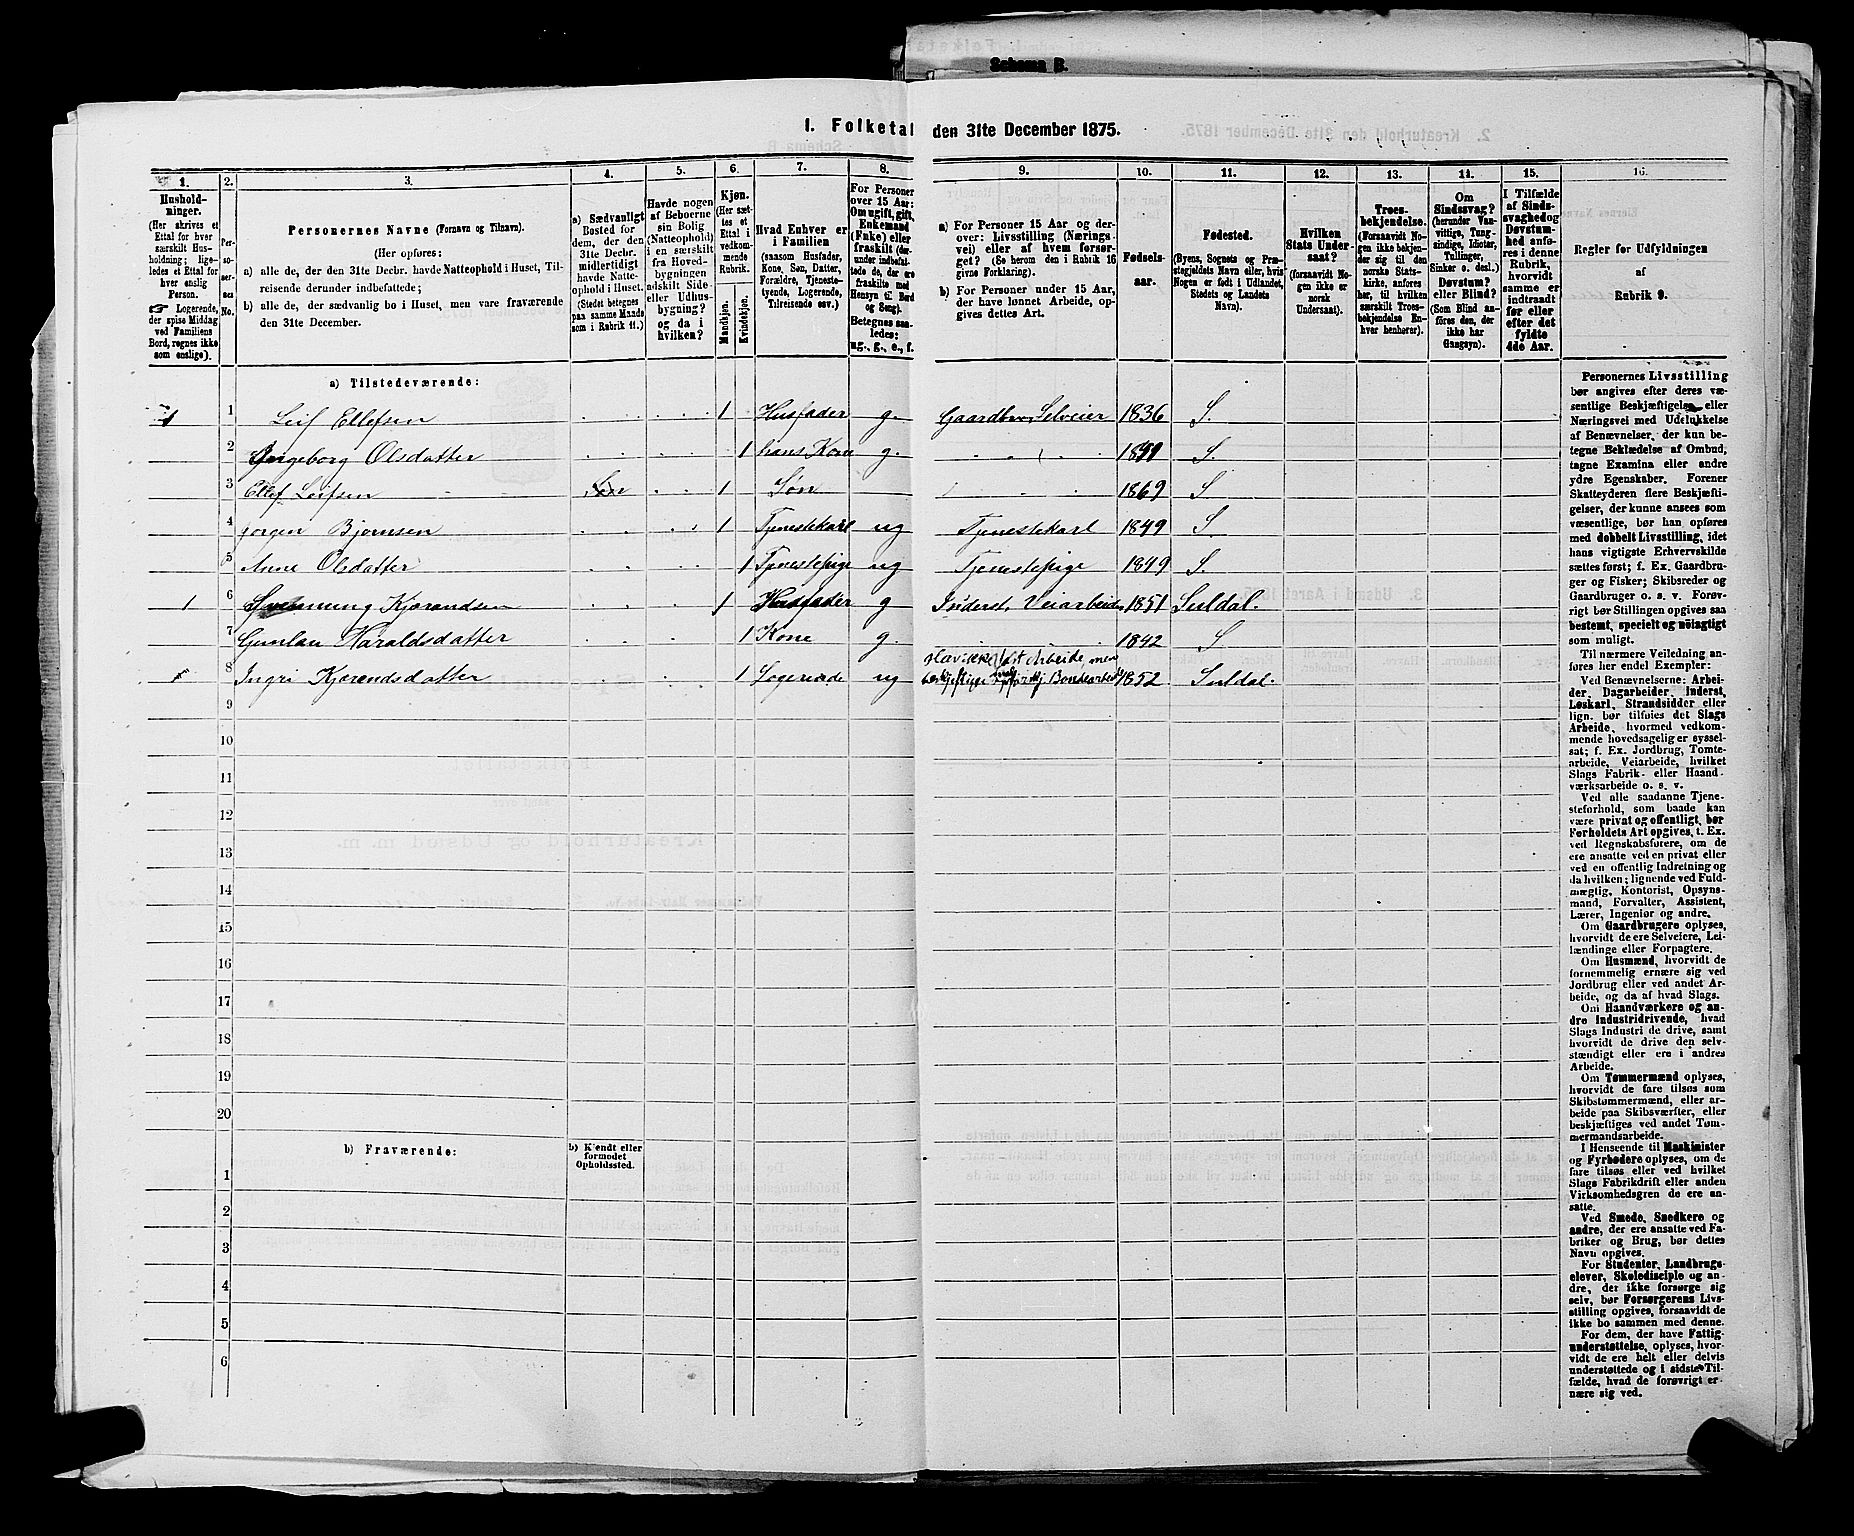 Schema B.
1. Folketal den 31te December 1875.
1. 2. 3. 4. 5. 6. 7. 8. 9. 10. 11. 12. 13. 14. 15. 16.
Husholdninger.
(Her skrives et
Ettal for hver
særskilt Husholdning;
ligeledes et Ettal for
hver enslig
Person.
Logerende,
der spise Middag
ved Familiens
Bord, regnes ikke
som enslige).
Personernes No.
Personernes Navne (Fornavn og Tilnavn).
(Her opføres:
a) alle de, der den 31te Decbr. havde Natteophold i Huset, Tilreisende derunder indbefattede;
b) alle de, der sædvanlig bo i Huset, men vare fraværende
den 31te December.
a) Sædvanligt
Bosted for
dem, der den
31te Decbr.
midlertidigt
havde Natteophold i Huset.
(Stedet betegnes
paa samme Maade
som i Rubrik 11.)
Havde nogen
af Beboerne
sin Bolig
(Natteophold)
i en særskilt
fra Hovedbygningen
adskilt Side-
eller Udhusbygning?
og da i
hvilken?
Kjøn.
(Her sættes et
Ettal i
vedkommende
Rubrik.
Mandkjøn.
Kvindekjøn.
Hvad Enhver er
i Familien
(saasom Husfader,
Kone, Søn, Datter,
Forældre, Tjenestetyende, Logerende,
Tilreisende osv.)
For Personer
over 15 Aar:
Om ugift, gift,
Enkemand
(Enke) eller
fraskilt (derunder indbefattede de, der ere
fraskilte med
Hensyn til Bord
og Seng).
Betegnes saaledes:
ug., g., e., f.
a) For Personer 15 Aar og derover: Livsstilling (Næringsvei) eller af hvem forsørget? (Se herom den i Rubrik 16
givne Forklaring).
b) For Personer under 15 Aar,
der have lønnet Arbeide, opgives dettes Art.
Fødselsaar.
Fødested.
(Byens, Sognets og Præstegjeldets Navn eller, hvis
Nogen er født i Udlandet,
Stedets og Landets
Navn).
Hvilken
Stats Undersaat?
(forsaavidt Nogen ikke er
norsk
Undersaat).
Troesbekjendelse.
(Forsaavidt Nogen ikke bekjender sig til den
norske Statskirke, anføres
her, til hvilken
særskilt Troesbekjendelse Enhver henhører).
Om
Sindssvag?
(herunder Vanvittige, Tungsindige, Idioter,
Tullinger,
Sinker o. desl.)
Døvstum?
eller Blind?
(Som Blind anføres den, der
ikke har
Gangsyn).
I Tilfælde
af Sindssvaghed og
Døvstumhed anføres i denne
Rubrik,
hvorvidt
samme er
indtraadt
før eller
efter det
fyldte
4de Aar.
Regler for Udfyldningen
af
Rubrik 9.
a) Tilstedeværende:
1 1 Leif Ellefsen 1 Husfader g. Gaardbr. Selveier 1836 S.
2 Ingeborg Olsdatter 1 hans Kone g. S.
3 Ellef Leifsen Søn 1 Søn 1869 S
4 Jørgen Bjørnsen 1 Tjenestekarl ug Tjenestekarl 1849 S.
5 Anne Olsdatter 1 Tjenestepige ug Tjenestepige 1849 S.
1 6 Kjærandsen 1 Husfader g Inderst, Veiarbeider 1851 Suldal.
7 Gunlau Haraldsdatter 1 Kone g. 1842 S
8 Ingri Kjærandsdatter 1 Logerende ug Har ikke fast Arbeide, men Bondearbeide 1852 Suldal.
9
10
11
12
13
14
15
16
17
18
19
20
b) Fraværende:
b) Kjendt eller
formodet
Opholdssted.
1
2
3
4
5
6
Personernes Livsstilling
bør angives efter deres væsentlige Beskjæftigelse eller
Næringsvei med Udelukkelse
af Benævnelser, der kun betegne Beklædelse af Ombud,
tagne Examina eller andre
ydre Egenskaber. Forener
Skatteyderen flere Beskjæftigelser, der kunne ansees som
væsentlige, bør han opføres
med dobbelt Livsstilling, idet
hans vigtigste Erhvervskilde
sættes først; f. Ex. Gaardbruger og Fisker; Skibsreder og
Gaardbruger o. s. v. Forøvrigt bør Stillingen opgives saa
bestemt, specielt og nöiagtigt
som muligt.
Til nærmere Veiledning anføres her endel Exempler:
Ved Benævnelserne: Arbeider, Dagarbeider, Inderst,
Løskarl, Strandsidder eller
lign. bør tilføies det Slags
Arbeide, hvormed vedkommende hovedsagelig er sysselsat; f. Ex. Jordbrug, Tomtearbeide, Veiarbeide, hvilket
Slags Fabrik- eller Haandværksarbeide o. s. v.
Ved alle saadanne Tjenesteforhold, som baade kan
være privat og offentligt, bør
Forholdets Art opgives, t. Ex.
ved Regnskabsførere, om de
ere ansatte ved en privat eller
ved en offentlig Indretning og
da hvilken; lignende ved Fuldmægtig, Kontorist, Opsynsmand, Forvalter, Assistent,
Lærer, Ingeniør og andre.
Om Gaardbrugere oplyses,
hvorvidt de ere Selveiere, Leilændinge eller Forpagtere.
Om Husmænd, hvorvidt de
fornemmelig ernære sig ved
Jordbrug eller ved andet Arbeide, og da af hvad Slags.
Om Haandværkere og andre Industridrivende, hvad
Slags Industri de drive, samt
hvorvidt de drive den selvstændigt eller ere i andres
Arbeide.
Om Tømmermænd oplyses,
hvorvidt de fare tilsøs som
Skibstømmermænd, eller arbeide paa Skibsværfter, eller
beskjæftiges ved andet Tømmermandsarbeide.
I Henseende til Maskinister
og Fyrbødere oplyses, om de
fare tilsøs eller ved hvilket
Slags Fabrikdrift eller anden
Virksomhedsgren de ere ansatte.
Ved Smede, Snedkere og
andre, der ere ansatte ved Fabriker og Brug, bør dettes
Navn opgives.
For Studenter, Landbrugselever, Skoledisciple og andre, der ikke forsørge sig
selv, bør Forsørgerens Livsstilling opgives, forsaavidt de
ikke bo sammen med denne.
For dem, der have Fattigunderstøttelse, oplyses, hvorvidt de ere helt eller delvis
understøttede og i sidste Tilfælde, hvad de forøvrigt ernære sig ved.